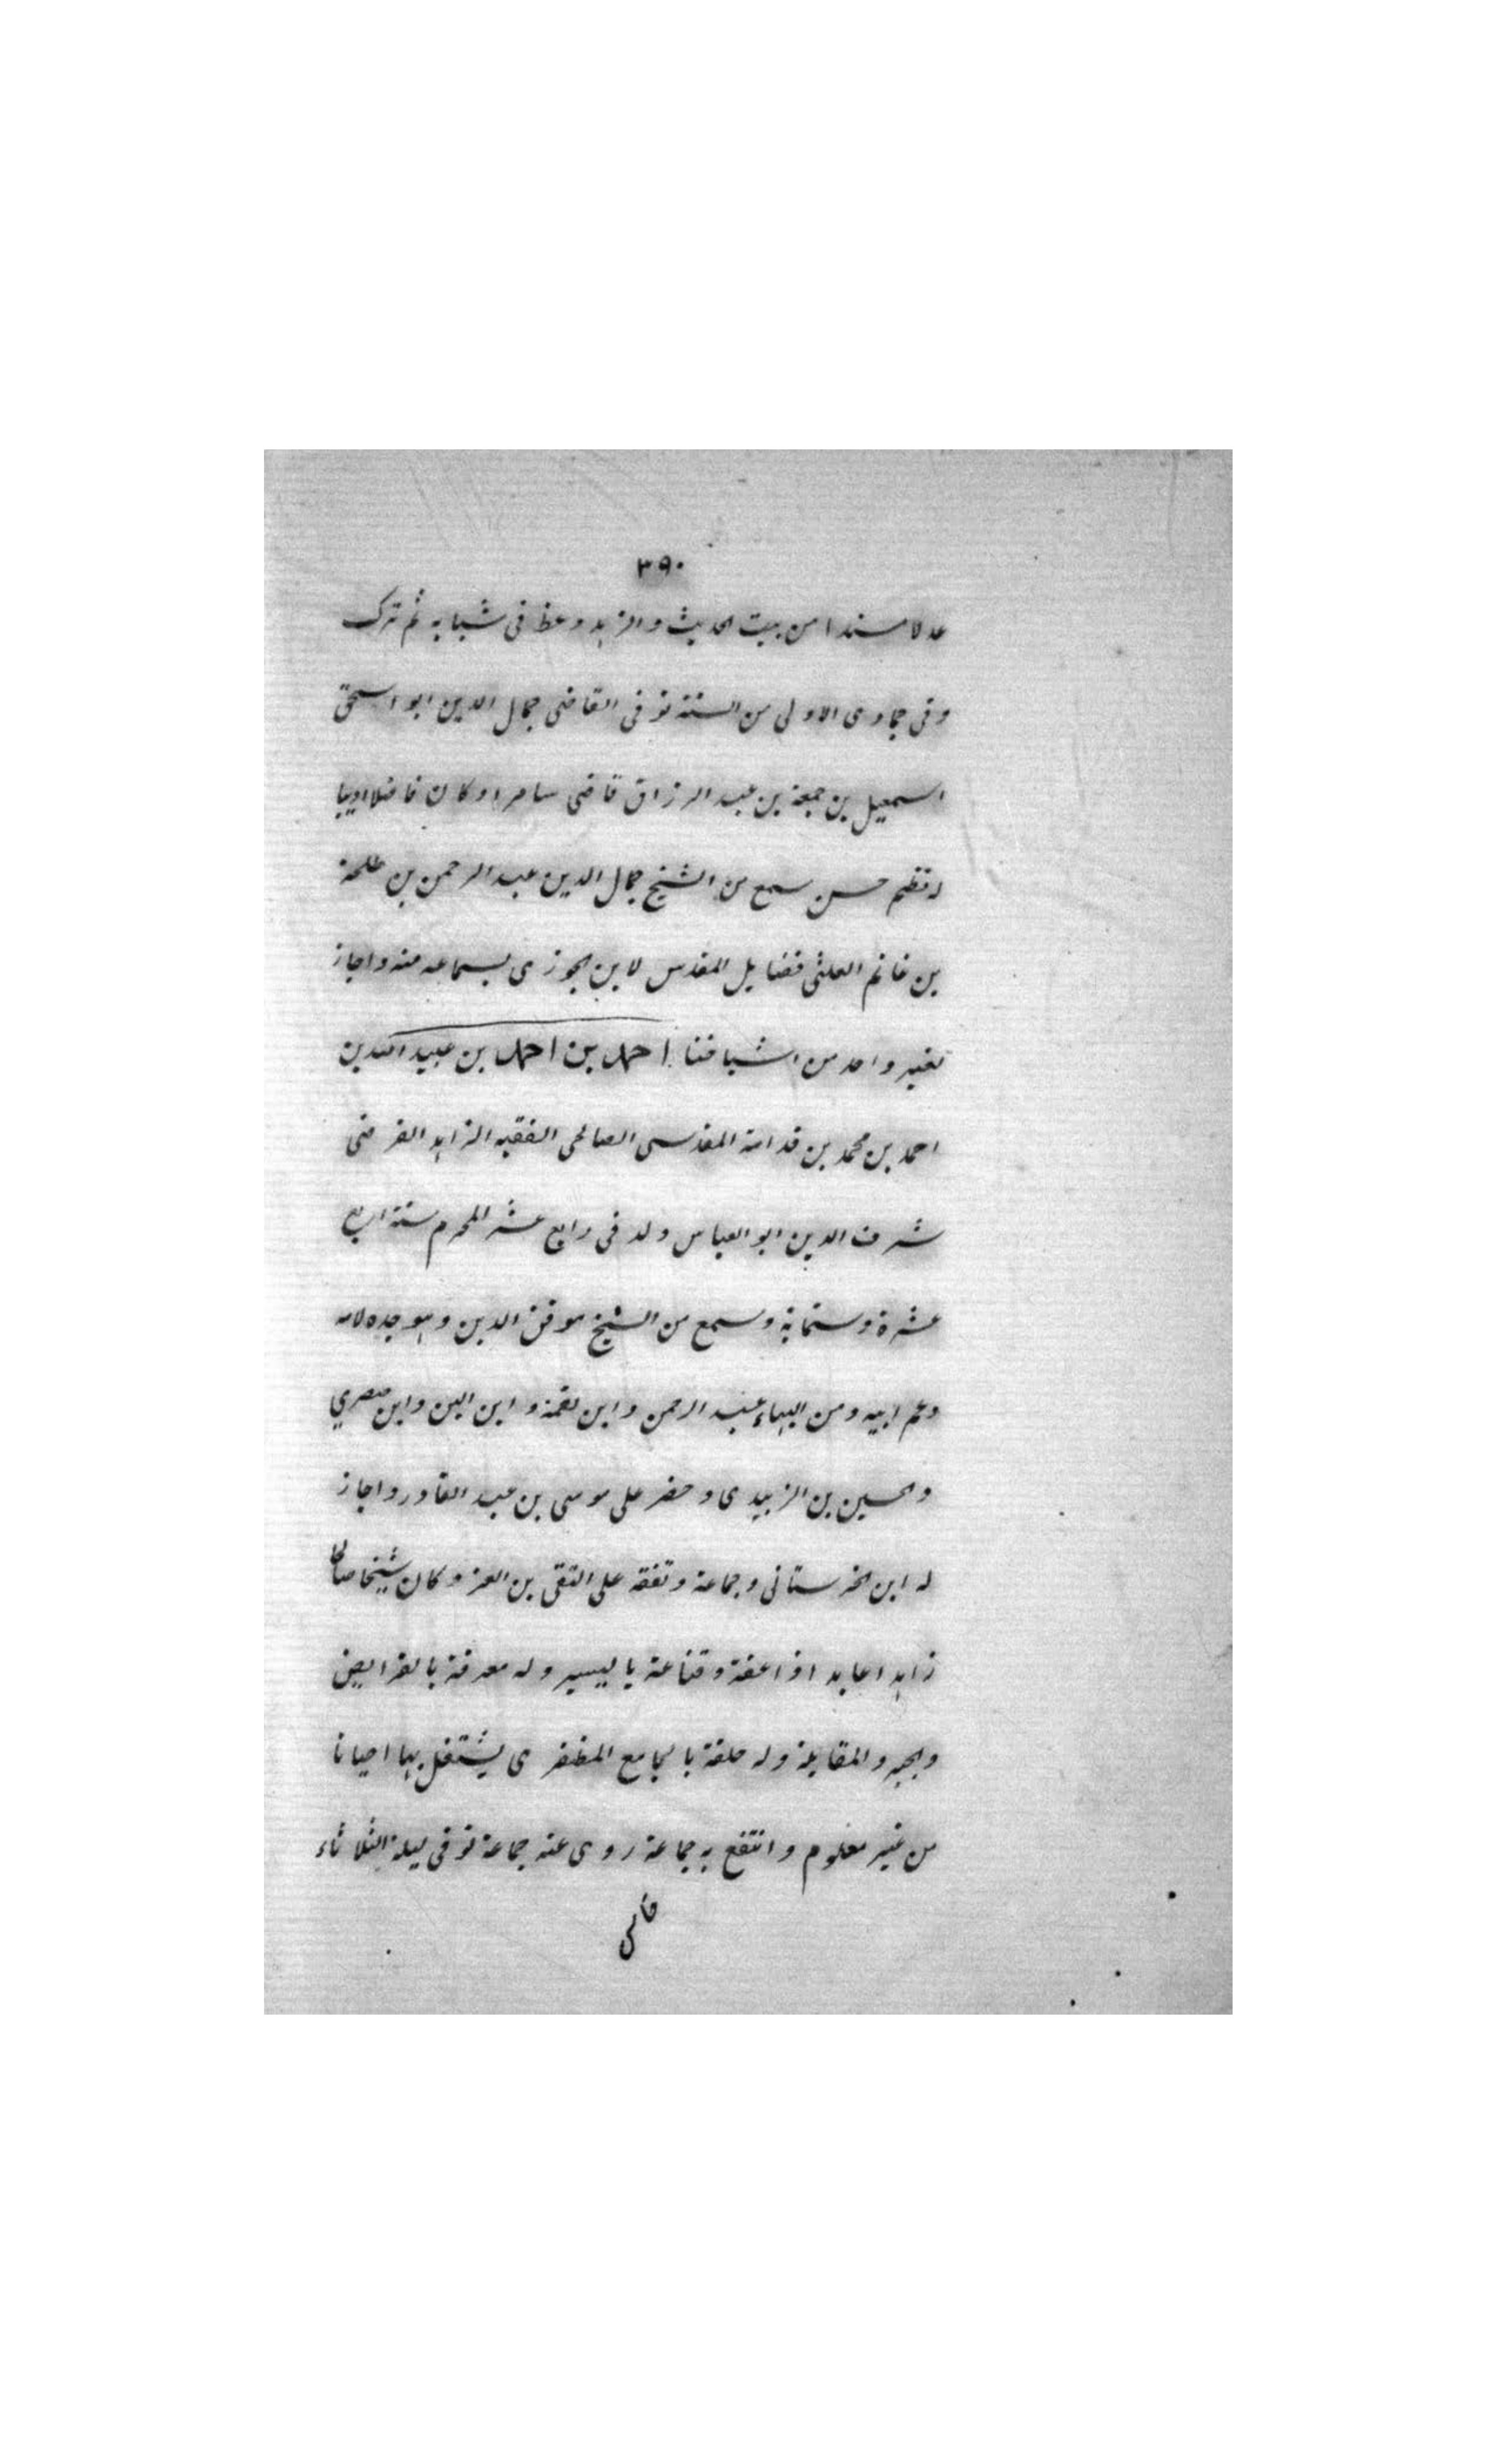 ٣٩٠
عدلا مسندا من بيت الحديث والزهد وعظ فى شبابه ثم ترك
وفى جمادى الاولى من السنة توفى القاضى جمال الدين ابو اسحق
اسمعيل بن جمعة بن عبد الرزاق قاضى سامرا وكان فاضلا اديبا
له نظم حسن سمع من الشيخ جمال الدين عبد الرحمن بن طلحة
بن غانم العلثى فضايل المقدس لابن الجوزى بسماعه منه واجاز
لغير واحد من اشياخنا احمد بن احمد بن عبيد الله بن
احمد بن محمد بن قدامة المقدسى الصالحى الفقيه الزاهد الفرضى
شرف الدين ابو العباس ولد فى رابع عشر المحرم سنة اربع
عشرة وستماية وسمع من الشيخ موفق الدين وهو جده لامه
وعم ابيه ومن البهاء عبد الرحمن وابن نقمة و ابن البن وابن صصري
والحسين بن الزبيدى وحضر على موسى بن عبد القادر واجاز
له ابن الحرستانى وجماعة وتفقه على التقى بن العز وكان شيخا صالحا
زاهدا عابدا ذا عفة وقناعة باليسير وله معرفة بالفرايض
والجبر والمقابلة وله حلقة بالجامع المظفرى يشتغل بها احيانا
من غير معلوم وانتفع به جماعة روى عنه جماعة توفى ليلة الثلاثاء